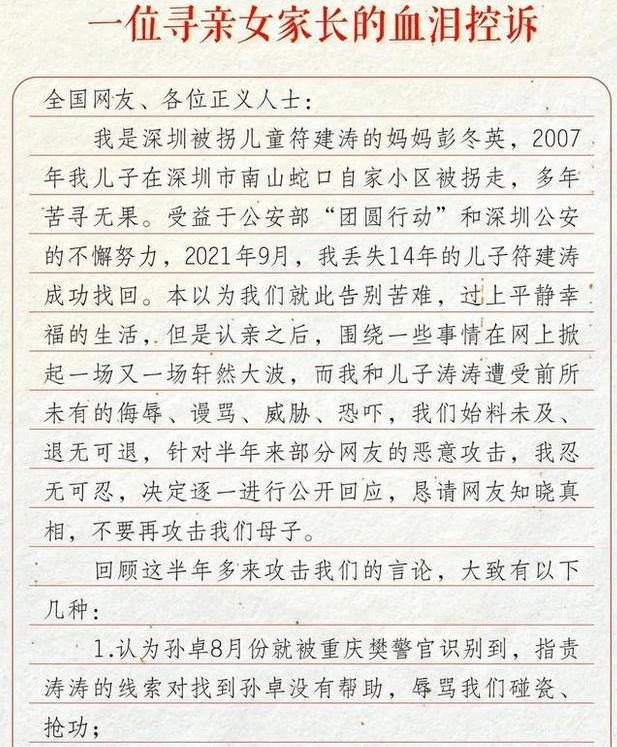 一位寻亲女家长的血泪控诉
全国网友、各位正义人士：
我是深圳被拐儿童符建涛的妈妈彭冬英，2007
年我儿子在深圳市南山蛇口自家小区被拐走，多年
苦寻无果。受益于公安部“团圆行动”和深圳公安
的不懈努力，2021年9月，我丢失14年的儿子符建涛
成功找回。本以为我们就此告别苦难，过上平静幸
福的生活，但是认亲之后，围绕一些事情在网上掀
起一场又一场轩然大波，而我和儿子涛涛遭受前所
未有的侮辱、谩骂、威胁、恐吓，我们始料未及、
退无可退，针对半年来部分网友的恶意攻击，我忍
无可忍，决定逐一进行公开回应，恳请网友知晓真
相，不要再攻击我们母子。
回顾这半年多来攻击我们的言论，大致有以下
几种：
1.认为孙卓8月份就被重庆樊警官识别到，指责
涛涛的线索对找到孙卓没有帮助，辱骂我们碰瓷、
抢功；